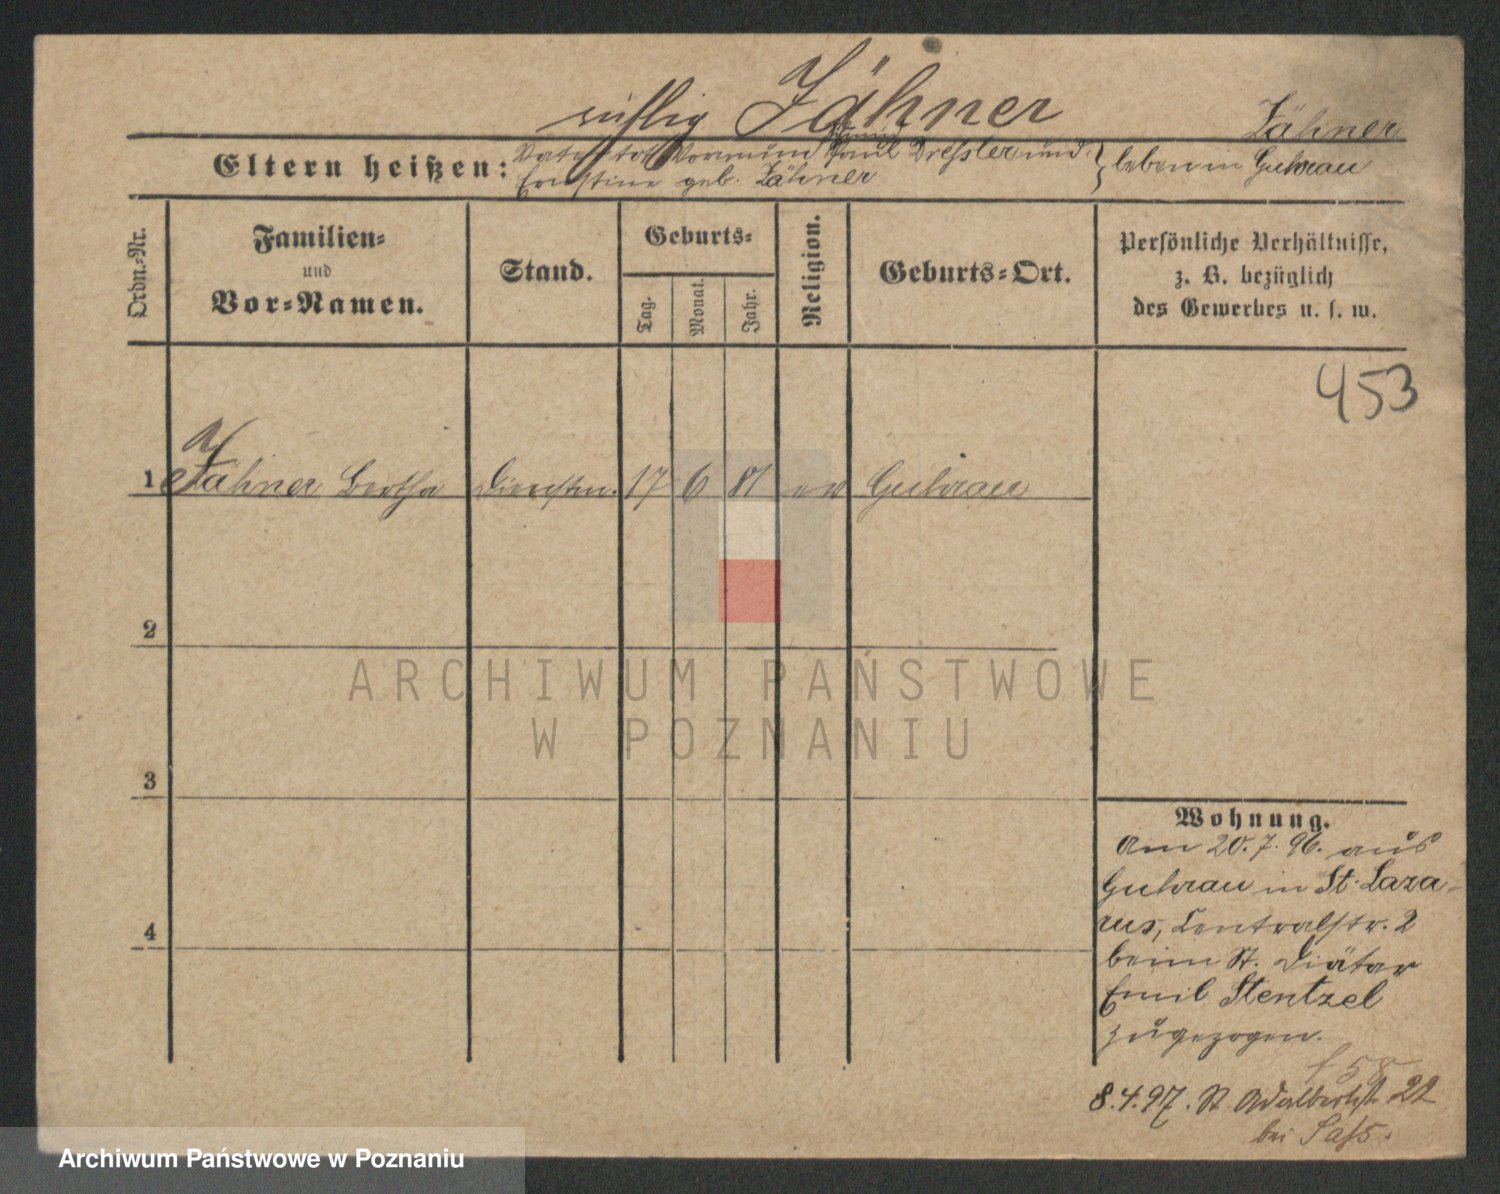 richtig Jähner Zähner
Eltern heißen: Vater tot Vormund Paul Dreßler und } leben in Guhrau
Ernstine geb. Zähner
Ordn.-Nr.
Familien-
und
Vor-Namen.
Stand.
Geburts-
Tag.
Monat.
Jahr.
Religion.
Geburts-Ort.
Persönliche Verhältnisse,
z. B. bezüglich
des Gewerbes u. s. w.
453
1 Jähner Bertha Dienstm. 17 6 81 ev Guhrau
2
3
4
Wohnung.
Am 20.7.96. aus
Guhrau in St. Laza-
rus, Centralstr. 2
beim St. Diätar
Emil Stentzel
zugezogen.
8.4.97. St. Adalbertst. 22
bei Saß.
ARCHIWUM PAŃSTWOWE
W POZNANIU
Archiwum Państwowe w Poznaniu